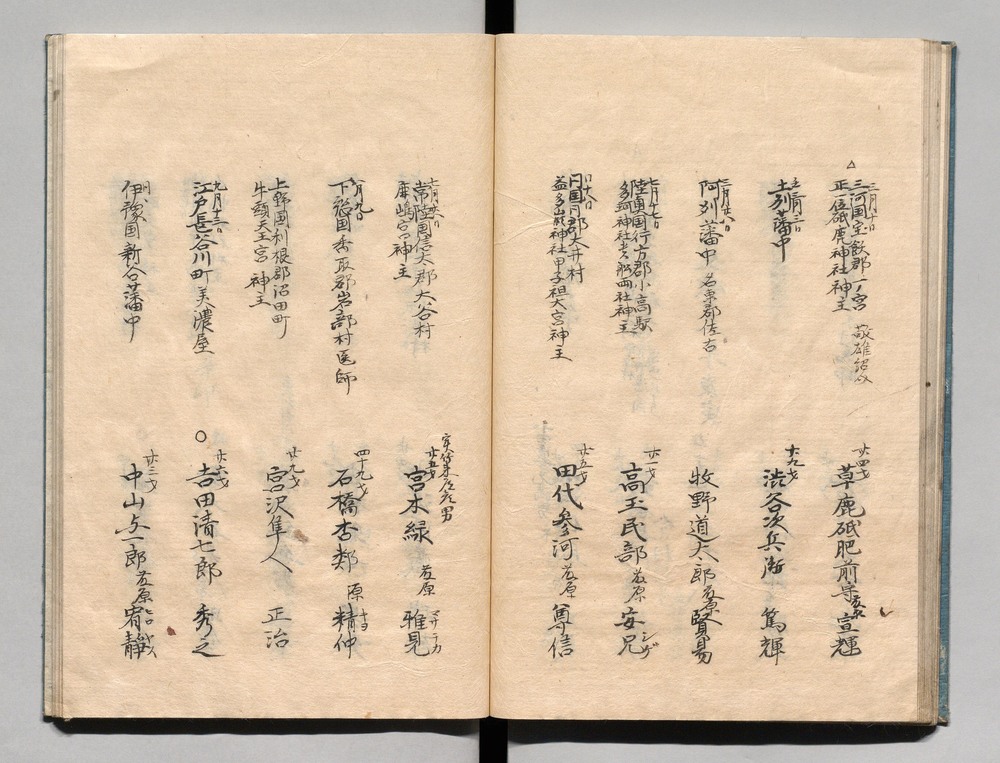 △
三月十日
三河国宝飯郡一ノ宮
正一位砥鹿神社神主
敬雄紹介
廿四才
草鹿砥肥前守
宣輝
五月三日
土刕藩中
廿九才
渋谷次兵衛
篤輝
七月廿八日
阿刕藩中
名東郡佐古
牧野道太郎
藤原
賢易
七月十七日
陸奥国行方郡小高駅
多珂神社
四社神主
廿一才
高玉民部
藤原
安兄
シゲ
同十八日
同国同郡大井村
益多嶺神社甲子祖大宮神主
廿五才
田代参河
藤原
尊信
常陸国信太郡大谷村
鹿嶋宮神主
廿五才
宮本緑
藤原
雅見
八月九日
下総国香取郡岩部村医師
四十九才
石橋杏
源
精仲
キヨ
上野國利根郡沼田町
牛頭天王宮 神主
廿九才
宮沢隼人
正治
九月十三日
江戸長谷川町美濃屋
○
吉田清七郎
秀之
同日
伊豫国新谷藩中
廿三才
中山与一郎
藤原